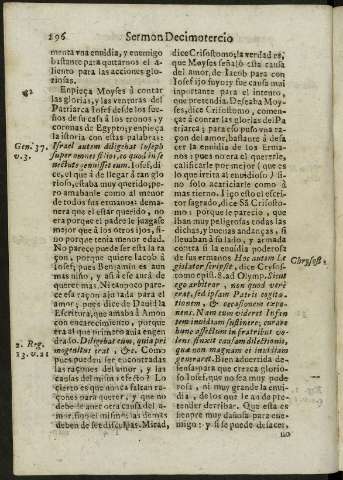 296 Sermon Decimotercio
menta vna envidia, y enemigo
bastante para quitarnos el a-
liento para las acciones glo-
riosas.
Empieça Moyses à contar
las glorias, y las venturas del
Patriarca Iosef desde los sue-
ños de su casa à los tronos, y
coronas de Egypto; y empieça
la istoria con estas palabras:
Gen. 37. Israel autem diligebat Ioseph
v. 3. super omnes filios, eo quod in se-
nectute genuisset eum. Iosef, di-
ze, el que à de llegar à tan glo
rioso, estaba muy querido, pe-
ro amabanle como al menor
de todos sus ermanos: de ma-
nera que el estar querido, no
era porque el padre le juzgase
mejor que à los otros ijos, si-
no porque tenia menor edad.
No parece puede ser esta la ra
çon, porque quiere Iacob à
Iosef; pues Benjamin es aun
mas niño, y asi à ese avia de
querer mas. Ni tampoco pare-
ce esa raçon ajustada para el
amor; pues dice de David la
Escritura, que amaba à Amon
con encarecimiento, porque
era al que primero avia engen
2. Reg. drado. Diligebat eum, quia pri
13. v. 21 mogenitus erat, &c. Como
pues pueden ser encontradas
las raçones del amor, y las
causas del mismo efecto? Lo
cierto es que nunca faltan ra-
çones para querer, y que no
debe le aner otra causa del a-
mor, sino el mismo; las demas
deben de ser disculpas. Mirad,
dice Crisostomo; la verdad es,
que Moyses señaló esta causa
del amor, de Iacob para con
Iosef ijo suyo; y fue causa mui
importante para el intento,
que pretendia. Deseaba Moy-
ses, dice Crisostomo, comen-
çar à contar las glorias del Pa
triarca; y para eso puso vna ra-
çon del amor, bastante à desa-
cer la envidia de los Erma-
nos; pues no era el quererle,
calificarle por mejor (que es
lo que irrita al envidioso) si-
no solo acariciarle como à
mas tierno. Iiço esto el escri-
tor sagrado, dice Sã Crisosto-
mo; porque le parecio, que
iban muy peligrosas todas las
dichas, y buenas andanças, si
llevaban à su lado, y armada
contra si la envidia poderosa
de sus ermanos Hoc autem Le
gislator scripsit, dice Crysos- Chrysost.
tomo epist. 8. ad Olymp. Sicut
ego arbitror, non quod verè
erat, sed ipsam Patris cogita-
tionem, & occasionem expo-
nens. Nam cum videret Iosep
tem invidiam sustinere; curans
hunc affectum in fratribus vo-
lens finxit causam dilectionis,
quæ non magnam et invidiam
generaret. Bien advertida de-
fensa para que crezca glorio-
so Iosef, que no sea muy pode
rosa, ni muy grande la envi-
dia, de los que le an de pre-
tender derribar. Que esta es
siempre muy dañosa para ene-
migo; y si se puede desacer,
no